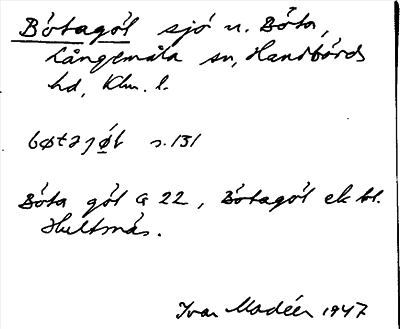 Bótagól sjö n. Bôta,
Långemåla sn, Handbörds
hd, Klm. l.
s. 131
Bôta göl G 22, Bôtagöl ek bl.
Hultsnäs.
Ivar Modéer 1947